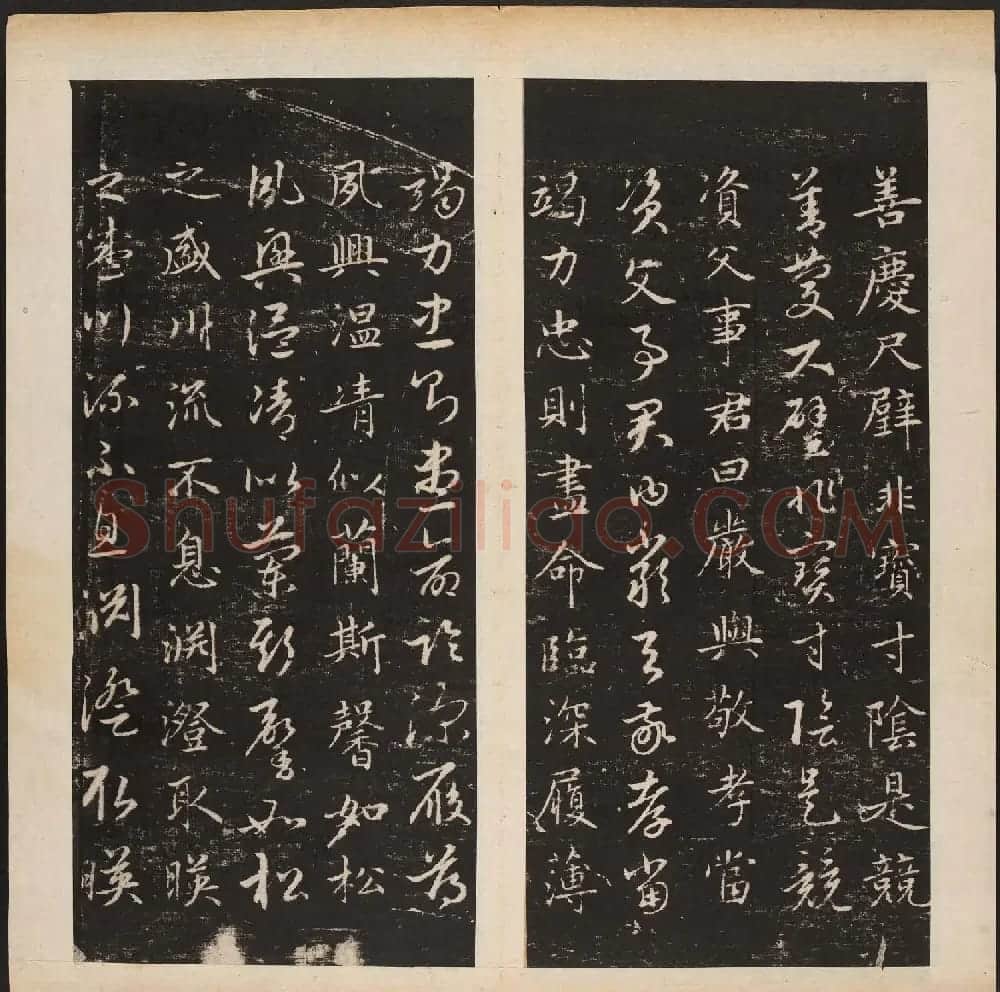 善慶尺璧非寶寸陰是競
善慶尺璧非寶寸陰是競
資父事君曰嚴與敬孝當
資父事君曰嚴與敬孝當
竭力忠則盡命臨深履薄
竭力忠則盡命臨深履薄
夙興溫凊似蘭斯馨如松
夙興溫凊似蘭斯馨如松
之盛川流不息淵澄取暎
之盛川流不息淵澄取暎
Shufaziliao.COM